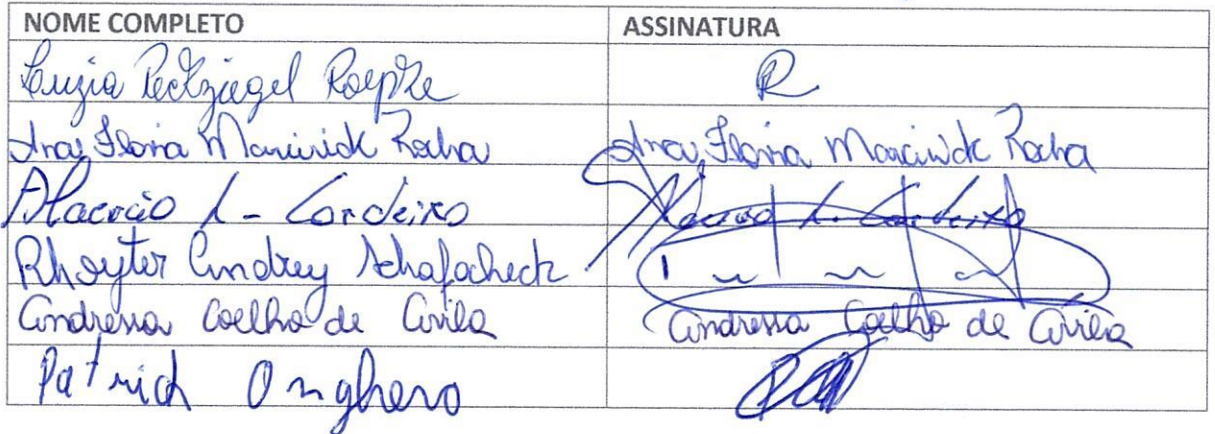 NOME COMPLETO ASSINATURA
Luzia Peckziegel Roepke R
Ana Flavia Marciwick Rocha Ana Flavia Marciwick Rocha
Alaercio L - Cordeiro L. Cordeiro
Rhoyter Andrey Schafacheck
Andressa Coelho de Avila Andressa Coelho de Avila
Patrick Onghero